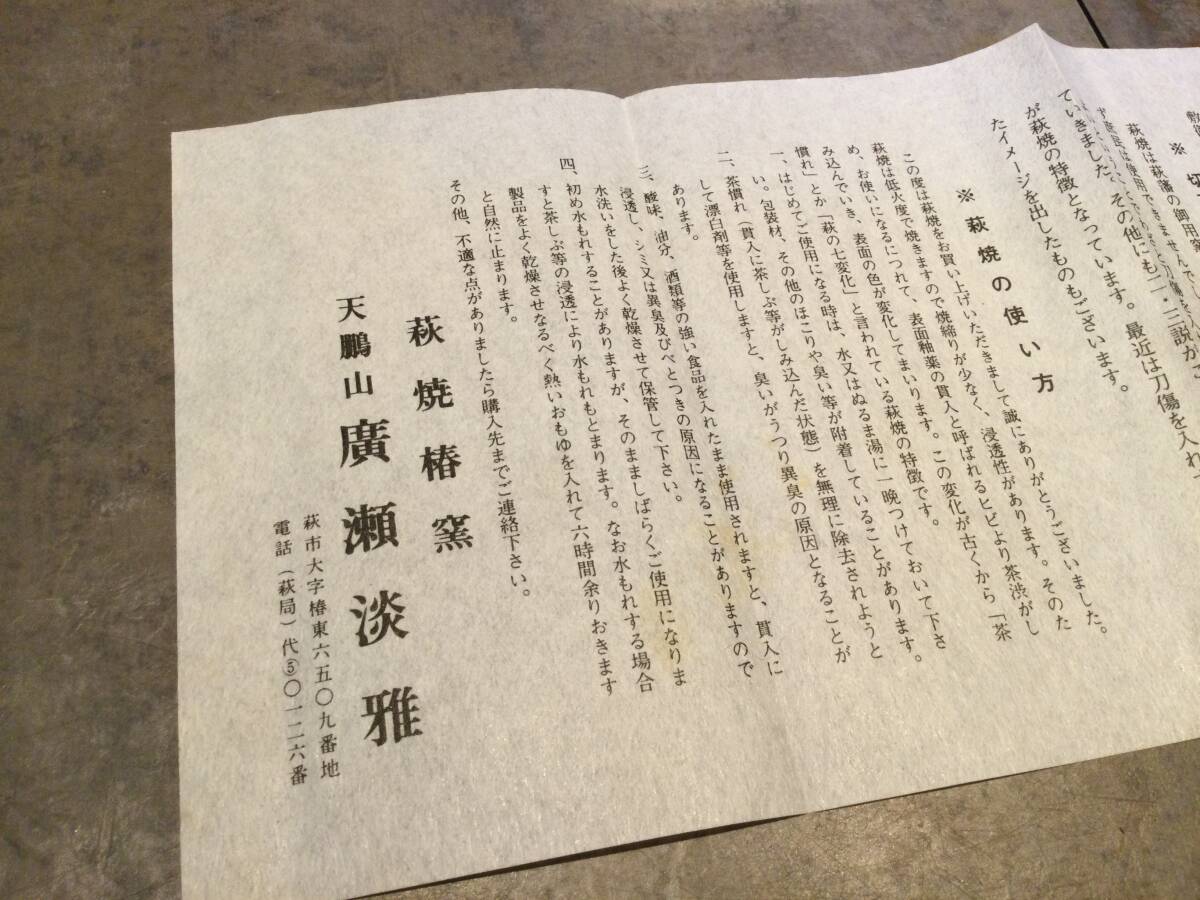 ※ 切
萩焼は萩藩の御用窯
ていきました。その他にも二・三説がご
が萩焼の特徴となっています。最近は刀傷を入れ
たイメージを出したものもございます。
※ 萩焼の使い方
この度は萩焼をお買い上げいただきまして誠にありがとうございました。
萩焼は低火度で焼きますので焼締りが少なく、浸透性があります。そのた
め、お使いになるにつれて、表面釉薬の貫入と呼ばれるヒビより茶渋がし
み込んでいき、表面の色が変化してまいります。この変化が古くから「茶
慣れ」とか「萩の七変化」と言われている萩焼の特徴です。
一、はじめてご使用になる時は、水又はぬるま湯に一晩つけておいて下さ
い。包装材、その他のほこりや臭い等が附着していることがあります。
二、茶慣れ（貫入に茶しぶ等がしみ込んだ状態）を無理に除去されようと
して漂白剤等を使用しますと、臭いがうつり異臭の原因となることが
あります。
三、酸味、油分、酒類等の強い食品を入れたまま使用されますと、貫入に
浸透し、シミ又は異臭及びべとつきの原因になることがありますので
水洗いをした後よく乾燥させて保管して下さい。
四、初め水もれすることがありますが、そのまましばらくご使用になりま
すと茶しぶ等の浸透により水もれもとまります。なお水もれする場合
製品をよく乾燥させなるべく熱いおもゆを入れて六時間余りおきます
と自然に止まります。
その他、不適な点がありましたら購入先までご連絡下さい。
萩焼椿窯
天鵬山 廣瀬淡雅
萩市大字椿東六五〇九番地
電話（萩局）代⑤〇一二六番